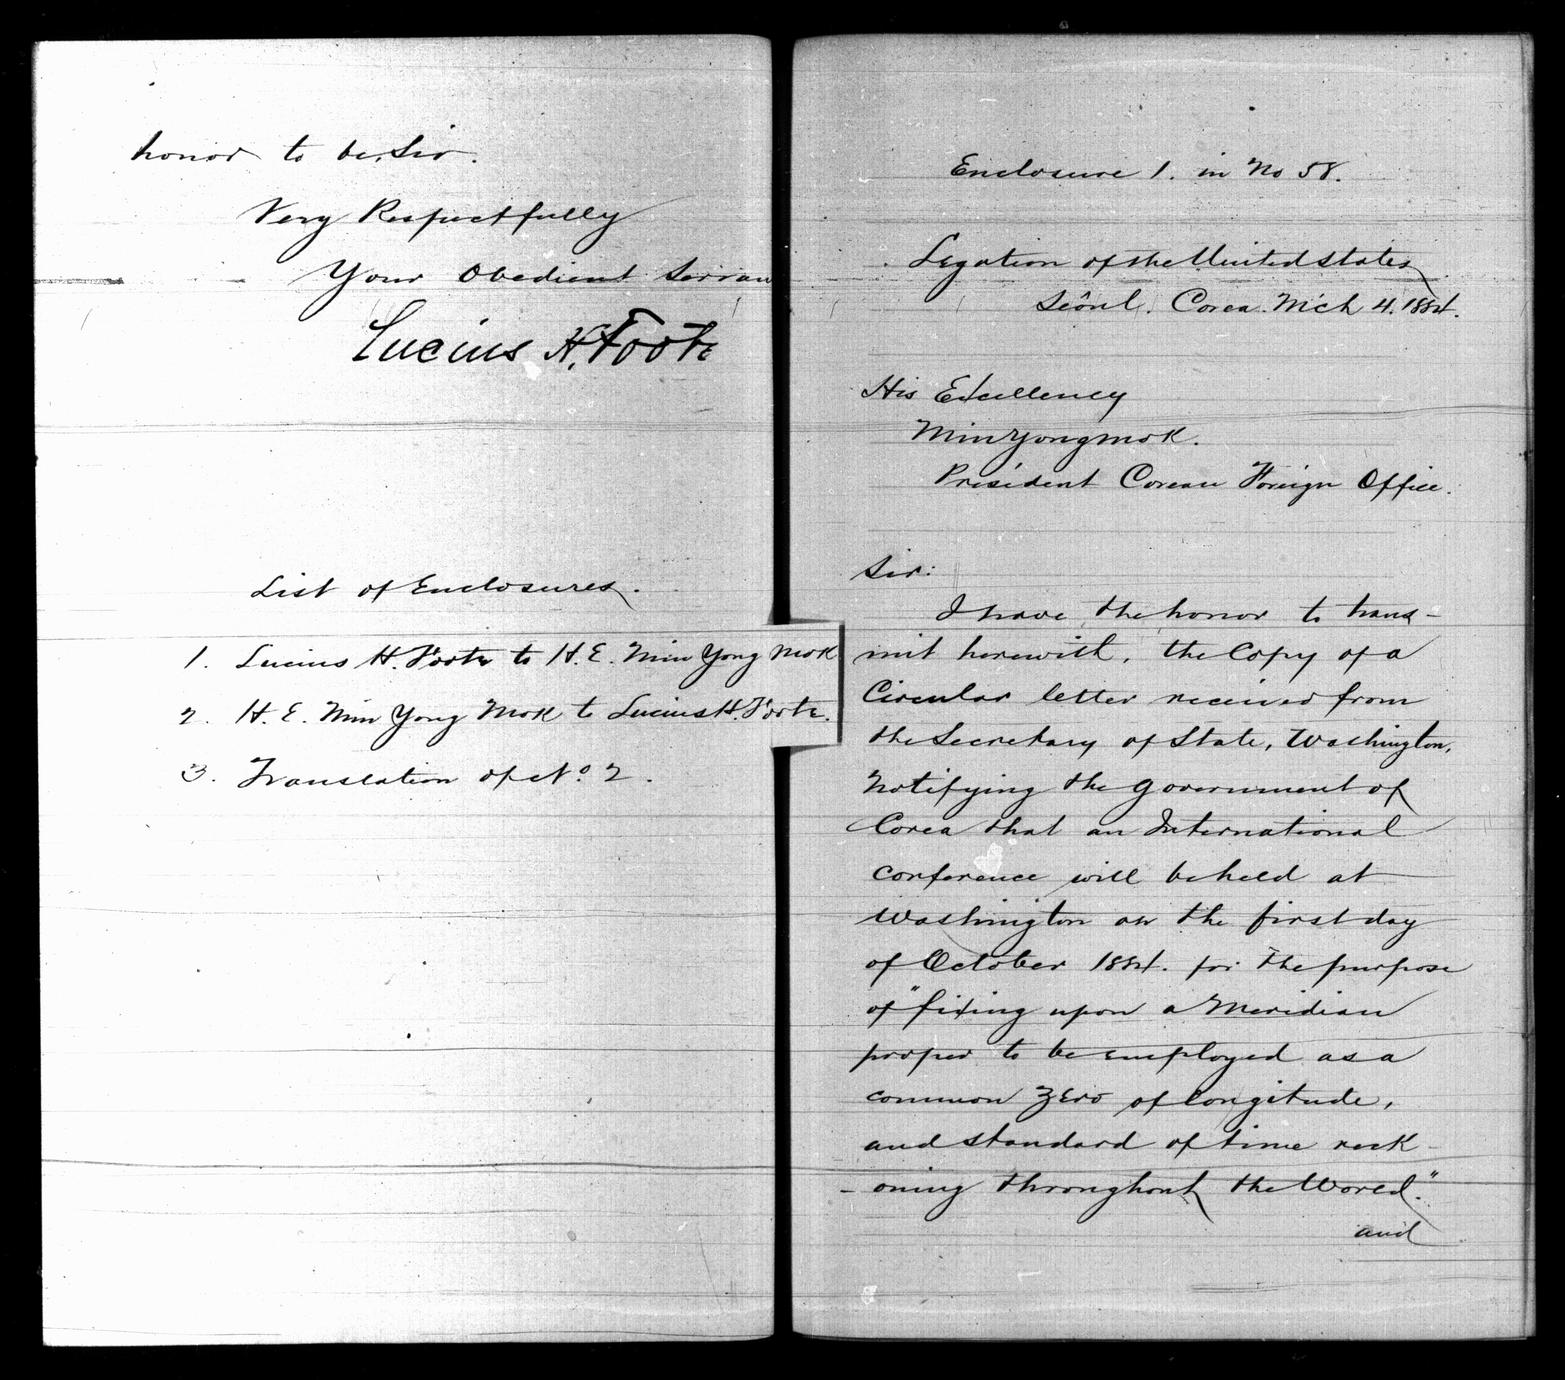 honor to be, Sir.
Very Respectfully
Your Obedient Servan
Lucius H. Foote
List of Enclosures.
1. Lucius H. Foote to H. E. Min Yong Mok
2. H. E. Min Yong Mok to Lucius H. Foote.
3. Translation of No 2.
Enclosure 1. in No 58.
Legation of the United States
Seôul. Corea. Mch 4. 1884.
His Excellency
Min Yong Mok.
President Corean Foreign Office.
Sir:
I have the honor to trans-
mit herewith, the Copy of a
Circular letter received from
the Secretary of State, Washington,
notifying the Government of
Corea that an International
conference will be held at
Washington on the first day
of October 1884. for the purpose
of "fixing upon a Meridian
proper to be employed as a
common zero of longitude,
and standard of time reck
-oning throughout the World."
and